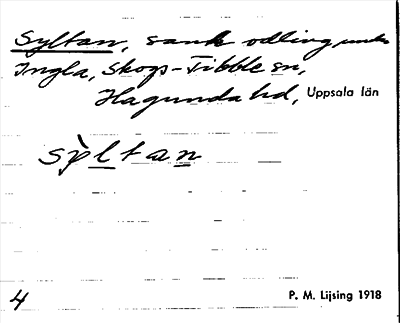 Syltan, sank odling under
Ingla, Skogs-Tibble sn,
Hagunda hd, Uppsala län
sỳltan
4
P. M. Lijsing 1918